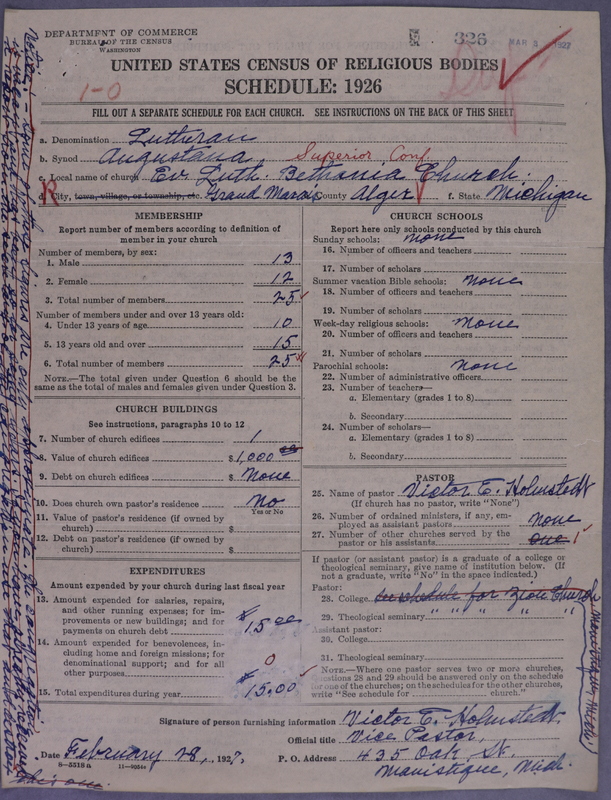 DEPARTMENT OF COMMERCE
BUREAU OF THE CENSUS
WASHINGTON
326
MAR 3 1927
1-0
UNITED STATES CENSUS OF RELIGIOUS BODIES
SCHEDULE: 1926
FILL OUT A SEPARATE SCHEDULE FOR EACH CHURCH. SEE INSTRUCTIONS ON THE BACK OF THIS SHEET
a. Denomination Lutheran
b. Synod Augustana Superior Conf.
c. Local name of church Ev. Luth. Bethania Church.
R d. City, town, village, or township, etc. Grand Marais County Alger f. State Michigan
MEMBERSHIP
Report number of members according to definition of member in your church
Number of members, by sex:
1. Male 13
2. Female 12
3. Total number of members 25
Number of members under and over 13 years old:
4. Under 13 years of age 10
5. 13 years old and over 15
6. Total number of members 25
NOTE.—The total given under Question 6 should be the same as the total of males and females given under Question 3.
CHURCH BUILDINGS
See instructions, paragraphs 10 to 12
7. Number of church edifices 1
8. Value of church edifices $1,000 00
9. Debt on church edifices $ None
10. Does church own pastor's residence No
Yes or No
11. Value of pastor's residence (if owned by church) $
12. Debt on pastor's residence (if owned by church) $
EXPENDITURES
Amount expended by your church during last fiscal year
13. Amount expended for salaries, repairs, and other running expenses; for improvements or new building; and for payments on church debt $15.00
14. Amount expended for benevolences, including home and foreign missions; for denominational support; and for all other purposes 0
15. Total expenditures during year $15.00
CHURCH SCHOOLS
Report here only schools conducted by this church
Sunday schools: none
16. Number of officers and teachers
17. Number of scholars
Summer vacation Bible schools: none
18. Number of officers and teachers
19. Number of scholars
Week-day religious schools: none
20. Number of officers and teachers
21. Number of scholars
Parochial schools: none
22. Number of administrative officers
23. Number of teachers—
a. Elementary (grades 1 to 8)
b. Secondary
24. Number of scholars—
a. Elementary (grades 1 to 8)
b. Secondary
PASTOR
25. Name of pastor Victor E. Holmstedt
(If church has no pastor, write "None")
26. Number of ordained ministers, if any, employed as assistant pastors none
27. Number of other churches served by the pastor or his assistants one 1
If pastor (or assistant pastor) is a graduate of a college or theological seminary, give name of institution below. (If not a graduate, write "No" in the space indicated.)
Pastor:
28. College See schedule for Zion Church
29. Theological seminary " " " " "
Assistant pastor:
30. College
31. Theological seminary
NOTE.—Where one pastor serves two or more churches, Questions 28 and 29 should be answered only on the schedule for one of the churches; on the schedules for the other churches, write "See schedule for church."
Signature of person furnishing information Victor E. Holmstedt
Official title Vice Pastor,
Date February 28, 1927. P. O. Address 435 Oak St.
8-5519a
Manistique, Mich.